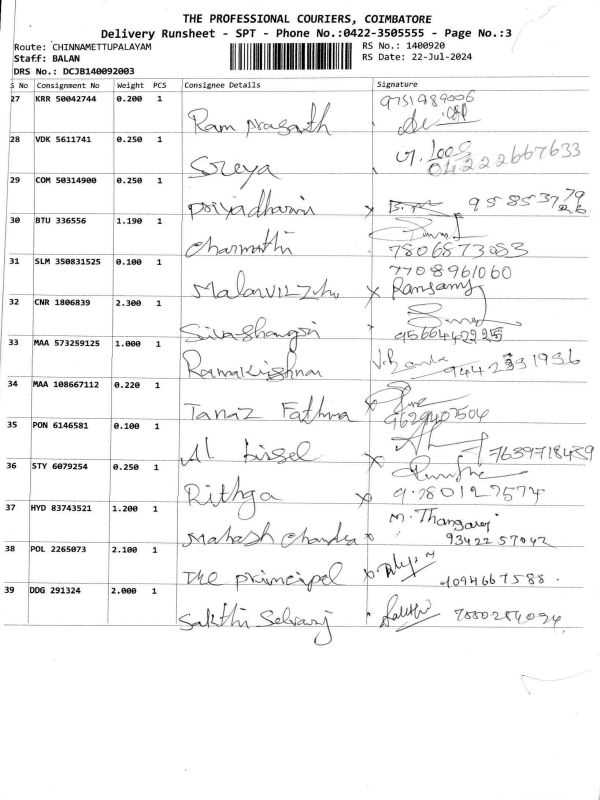 THE PROFESSIONAL COURIERS, COIMBATORE
Delivery Runsheet - SPT - Phone No.:0422-3505555 - Page No.:3
Route: CHINNAMETTUPALAYAM
RS No.: 1400920
Staff: BALAN
RS Date: 22-Jul-2024
DRS No.: DCJB140092003
S No Consignment No Weight PCS Consignee Details Signature
27 KRR 50042744 0.200 1 Ram prasath 9751989006
28 VDK 5611741 0.250 1 Sreya 04222667633
29 COM 50314900 0.250 1 Priyadharsini
30 BTU 336556 1.190 1 Charmathi 7806873053
31 SLM 350831525 0.100 1 Malarvizhi 7708961060 Ramsamy
32 CNR 1806839 2.300 1 Sivashangari
33 MAA 573259125 1.000 1 Ramakrishnan
34 MAA 108667112 0.220 1 Tanaz Fathma 9629407504
35 PON 6146581 0.100 1 Al 7639718439
36 STY 6079254 0.250 1 Rithga
37 HYD 83743521 1.200 1 Mahash Chandra M. Thangaraj 9342257042
38 POL 2265073 2.100 1 The principel
39 DDG 291324 2.000 1 Sakthi Selvaraj